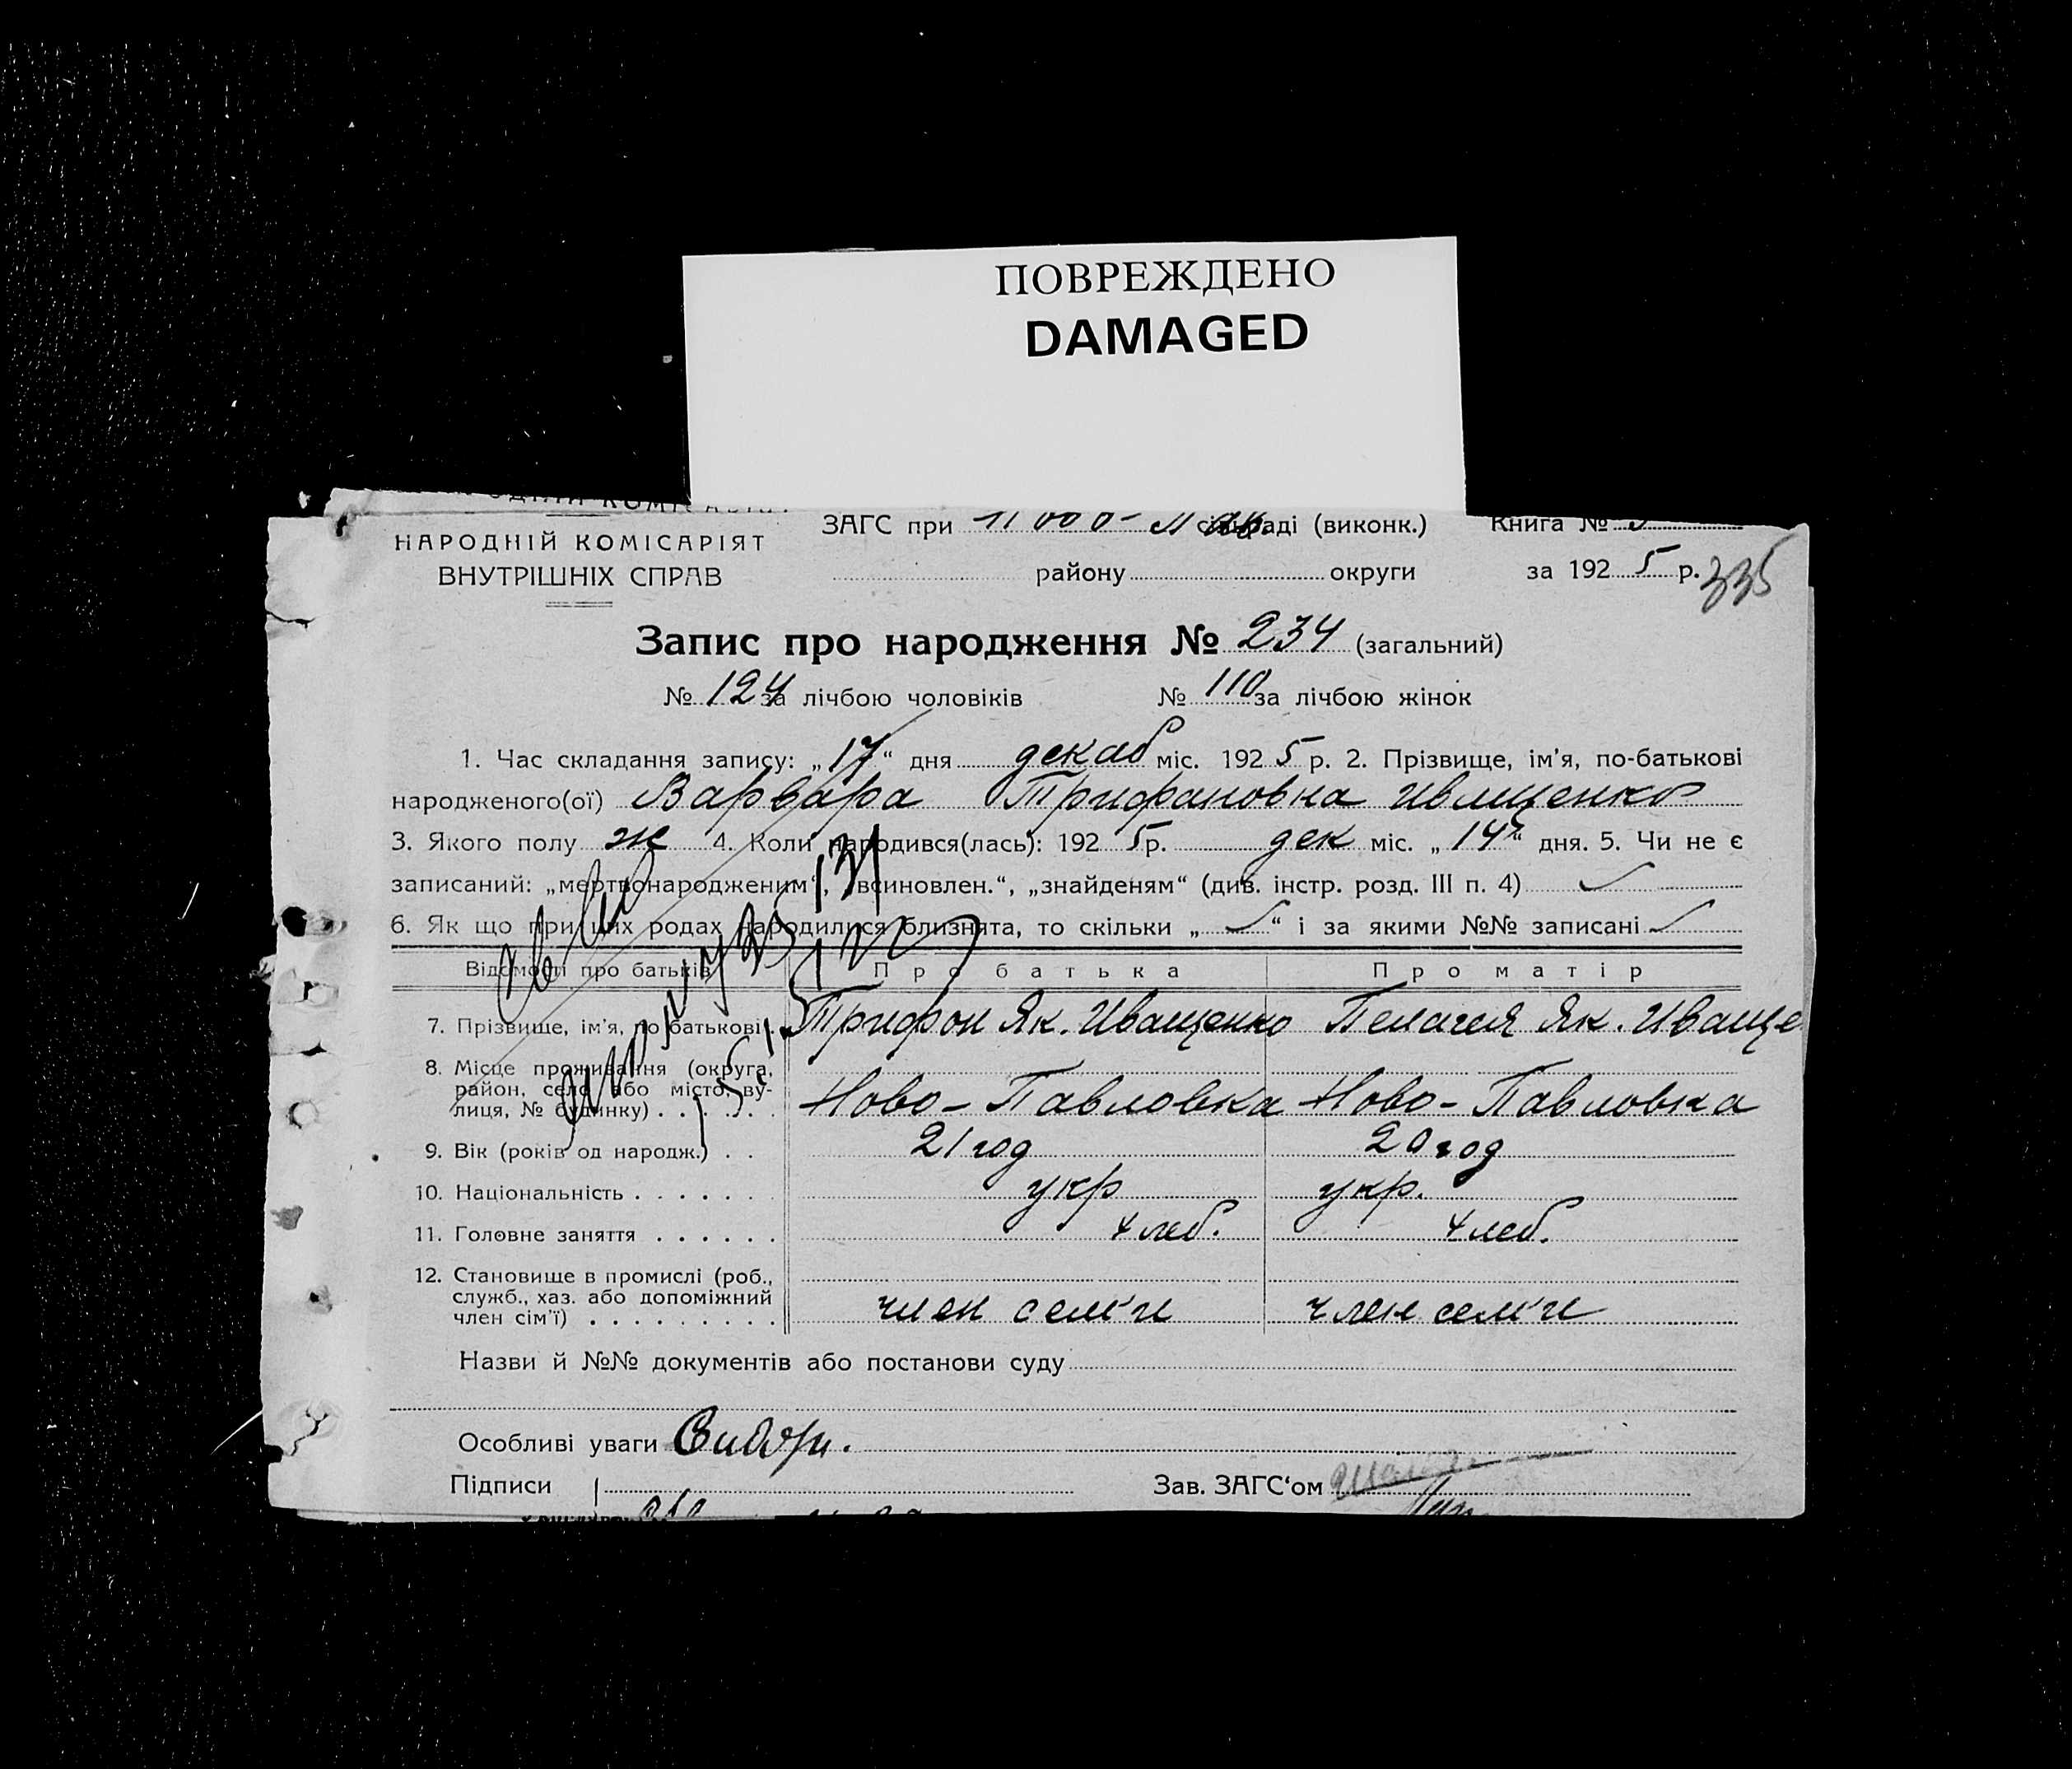 ПОВРЕЖДЕНО
DAMAGED
НАРОДНІЙ КОМІСАРІЯТ
ВНУТРІШНІХ СПРАВ
ЗАГС при сільраді (виконк.) Книга №
району округи за 1925 р. 335
Запис про народження № 234 (загальний)
№ 124 за лічбою чоловіків № 110 за лічбою жінок
1. Час складання запису: „17“ дня декаб міс. 1925 р. 2. Прізвище, ім'я, по-батькові
народженого(ої) Варвара Трифановна Иващенко
3. Якого полу ж 4. Коли народився(лась): 1925 р. дек міс. „14“ дня. 5. Чи не є
записаний: „мертвонародженим“, „всиновлен.“, „знайденям“ (див. інстр. розд. III п. 4)
6. Як що при ціх родах народилися близнята, то скільки „ “ і за якими №№ записані
Відомості про батьків Про батька Про матір
7. Прізвище, ім'я, по батькові . Трифон Як. Иващенко Пелагея Як. Иваще
8. Місце проживання (округа,
район, село або місто, ву-
лиця, № будинку) . . . . . . Ново-Павловка Ново-Павловка
9. Вік (років од народж.) . . 21 год 20 год
10. Національність . . . . . . . укр укр.
11. Головне заняття . . . . . . хлеб. хлеб.
12. Становище в промислі (роб.,
служб., хаз. або допоміжний
член сім'ї) . . . . . . . . . член сем'и член сем'и
Назви й №№ документів або постанови суду
Особливі уваги
Підписи Зав. ЗАГС'ом